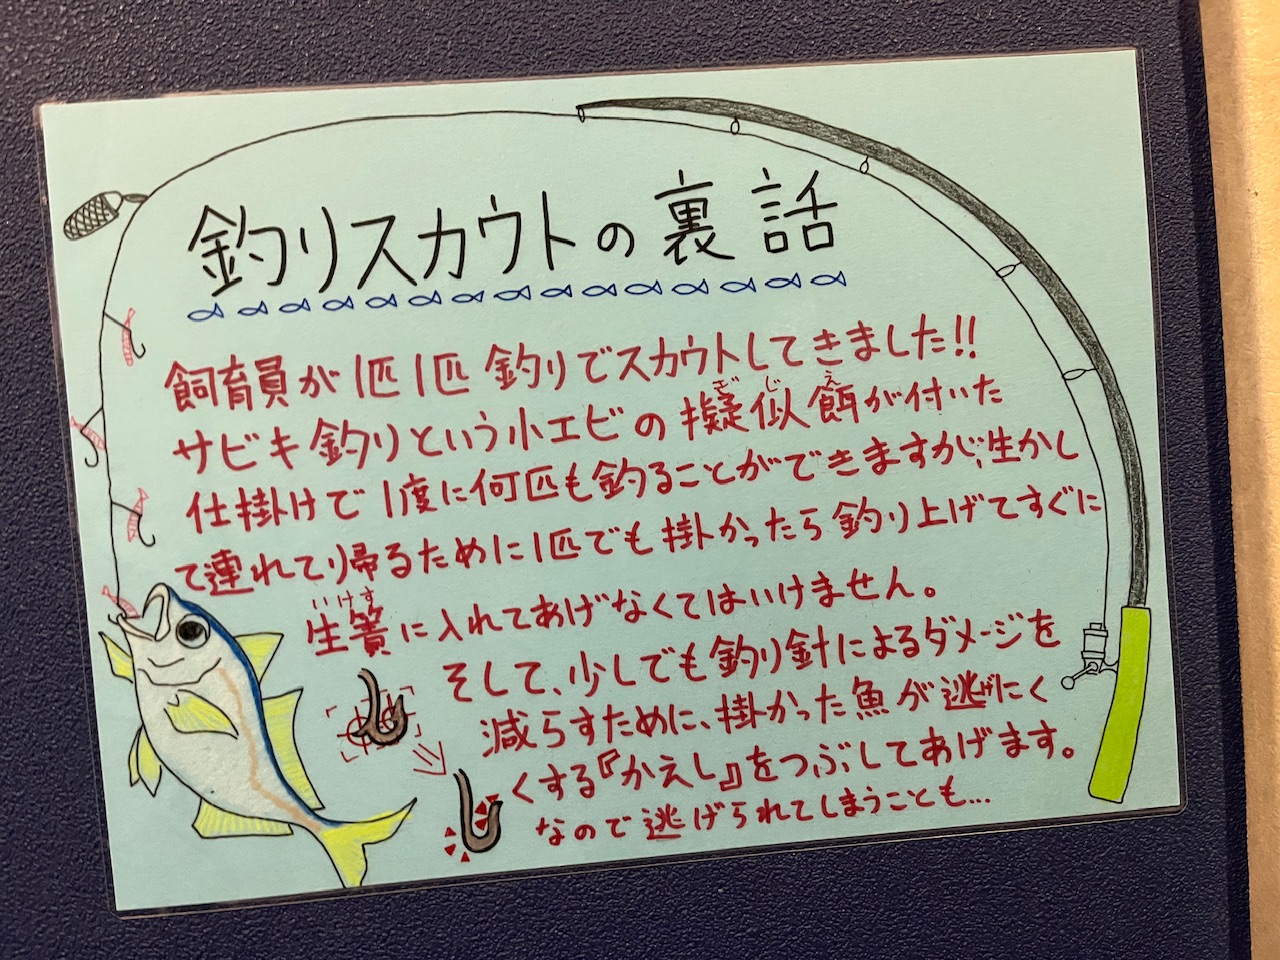 釣りスカウトの裏話
飼育員が1匹1匹釣りでスカウトしてきました!!
サビキ釣りという小エビの擬似餌が付いた
ぎじえ
仕掛けで1度に何匹も釣ることができますが、生かし
て連れて帰るために1匹でも掛かったら釣り上げてすぐに
いけす
生簀に入れてあげなくてはいけません。
そして、少しでも釣り針によるダメージを
減らすために、掛かった魚が逃げにく
くする『かえし』をつぶしてあげます。
なので逃げられてしまうことも…